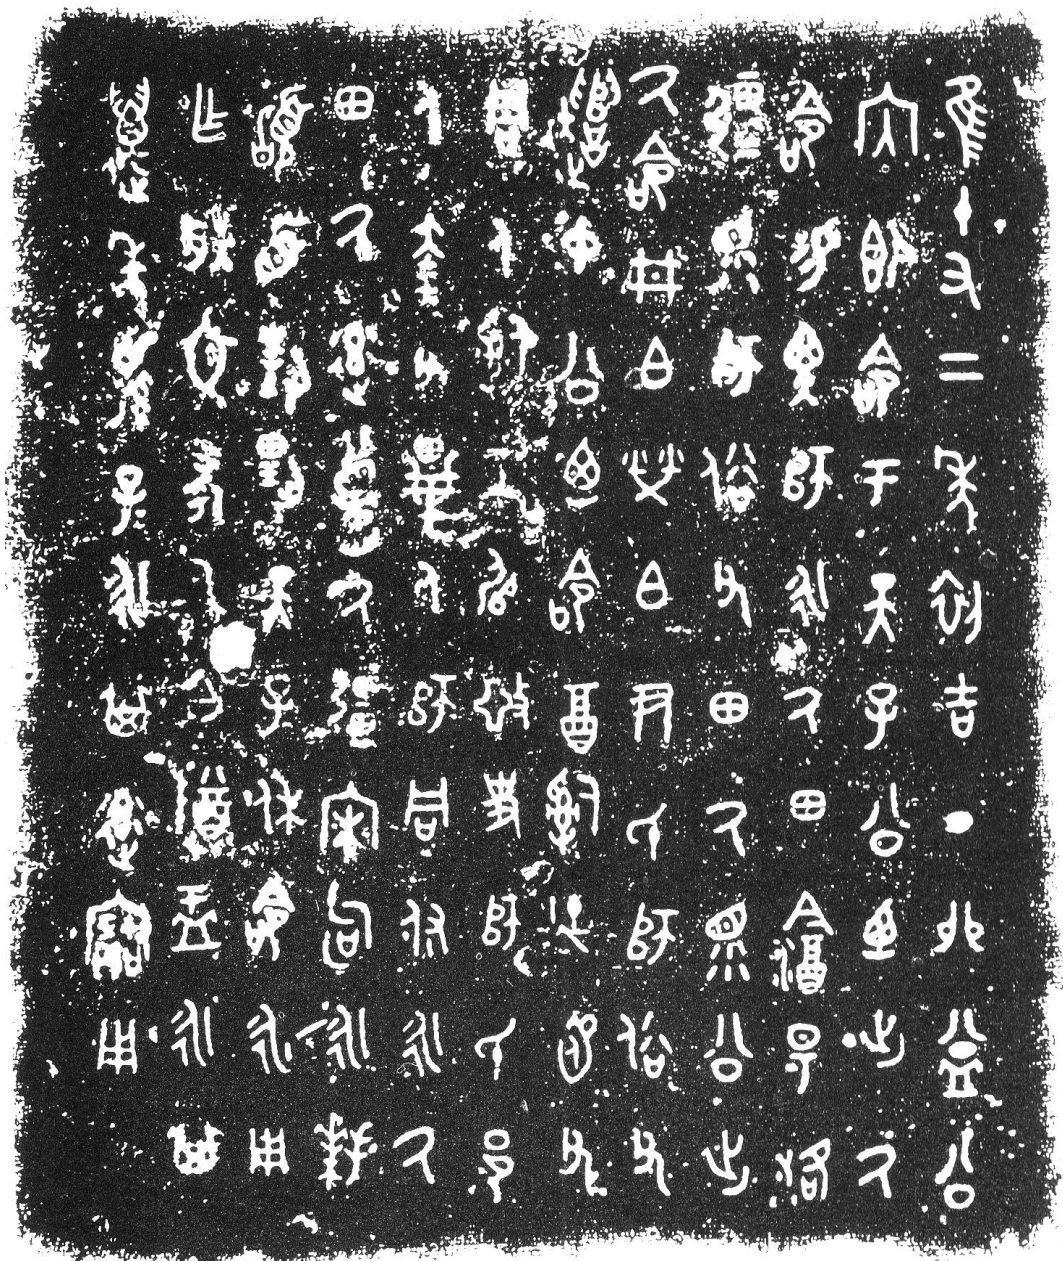 隹十又二年初吉丁卯益公
內即命于天子公迺出厥
命易畀師永厥田陰昜洛
疆眔師俗父田厥眔公出
厥命井白𤇾白尹氏師俗父
遣中公迺命酉𤔲徒圅父
周人𤔲工眉敃史師氏邑
人奎父畢人師同付永厥
田厥率履厥疆宋句永拜
𩒨首對揚天子休命永用
乍朕文考乙白尊盂永其
萬年孫孫子子永其率寶用